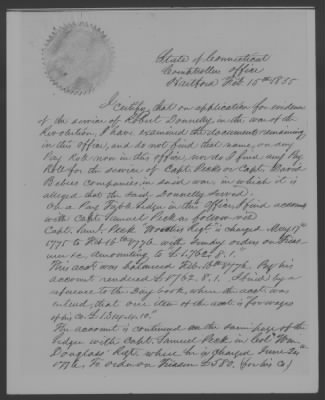 State of Connecticut
Comptrollers Office
Hartford Feb. 15th 1855
I certify, that on application for evidence
of the service of Robert Donnelly, in the war of the
Revolution, I have examined the documents remaining
in this office, and do not find that name, on any
Pay Roll now in this office, nor do I find any Pay
Roll for the service of Capt. Peck or Capt. David
companies, in said war, in which it is
alleged that the said Donnelly served.
On a Pay Table Ledger in this Office I find account
with Capt. Samuel Peck as follows viz
Capt. Saml. Peck Regt. is charged May 17th
1775 to Feb 16th 1776 with sundry orders on Treas
urer &c. amounting to £1,762. 8. 1."
This acct was balanced Feb. 1776. By his
account rendered £1762. 8. 1. I find by a
reference to the Day book, where the acct. was
entered, that one item of the acct. is for wages
of his Co. £1314.14.10."
The account is continued on the same page of the
Ledger with Capt. Samuel Peck in Colo. Wm.
Douglass' Regt. where he is charged June 20
1776. To order on Treasr £580. (for his Co)